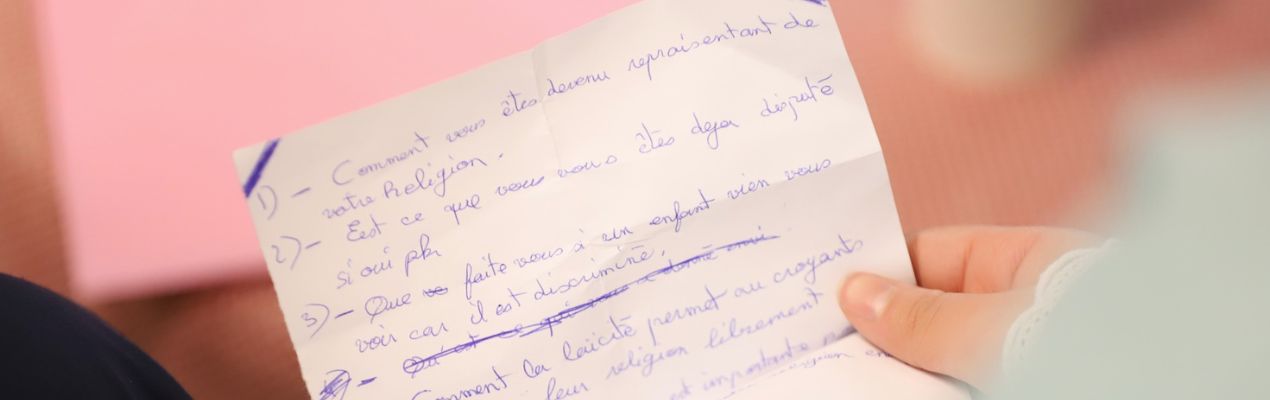 1) - Comment vous êtes devenu repraisentant de
votre Religion.
2) - Est ce que vous vous êtes deja disputé
si oui pk
3) - Que faite vous à un enfant vien vous
voir car il est discriminé.
Qu'est ce qui vous a donné envi
Comment la laicité permet au croyants
leur religion librement
est importante